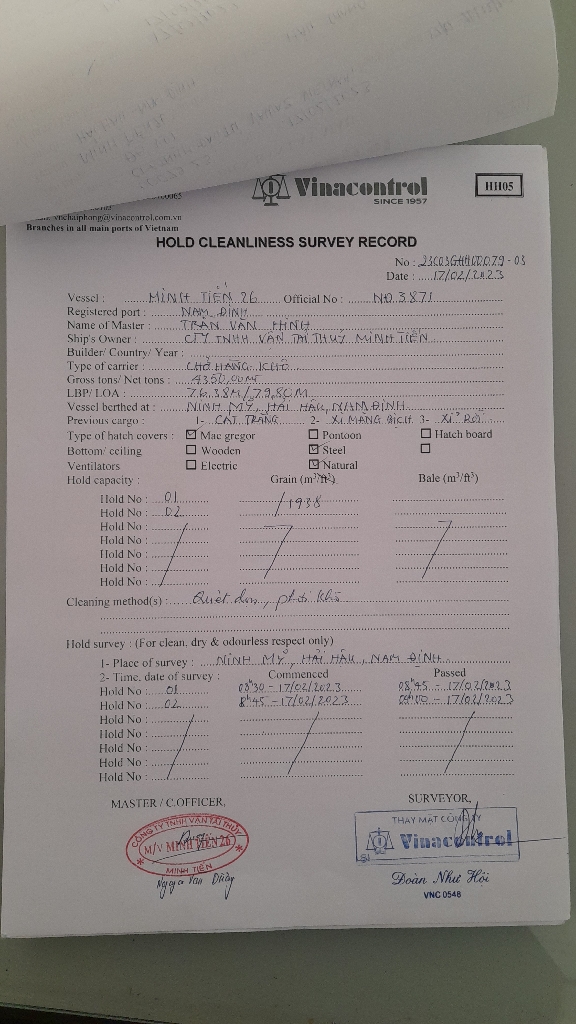 Vinacontrol
SINCE 1957
HH05
vnchaiphong@vinacontrol.com.vn
Branches in all main ports of Vietnam
HOLD CLEANLINESS SURVEY RECORD
No :
Date : 17/02/2023
Vessel : MINH TIẾN 26 Official No : NĐ.3871
Registered port : NAM ĐỊNH
Name of Master : TRẦN VĂN
Ship's Owner : CTY TNHH VẬN TẢI THUỶ MINH TIẾN
Builder/ Country/ Year :
Type of carrier : CHỞ HÀNG KHÔ
Gross tons/ Net tons : 4350,00 MT
LBP/ LOA : 76,38M / 79,80M
Vessel berthed at : NINH MỸ, HẢI HẬU, NAM ĐỊNH
Previous cargo : 1- CÁT TRẮNG 2- XI MĂNG BỊCH 3- XỈ
Type of hatch covers : Mac gregor Pontoon Hatch board
Bottom/ ceiling Wooden Steel
Ventilators Electric Natural
Hold capacity : Grain (m³/ft³) Bale (m³/ft³)
Hold No : 01
Hold No : 02 /1938
Hold No :
Hold No :
Hold No :
Hold No :
Hold No :
Cleaning method(s) : Quét dọn, phơi khô
Hold survey : (For clean, dry & odourless respect only)
1- Place of survey : NINH MỸ, HẢI HẬU, NAM ĐỊNH
2- Time, date of survey : Commenced Passed
Hold No : 01 08h30 - 17/02/2023 08h45 - 17/02/2023
Hold No : 02 8h45 - 17/02/2023 09h00 - 17/02/2023
Hold No :
Hold No :
Hold No :
Hold No :
Hold No :
MASTER / C.OFFICER, SURVEYOR,
CÔNG TY TNHH VẬN TẢI THỦY
M/V MINH TIẾN 26
MINH TIẾN
THAY MẶT CÔNG TY
Vinacontrol
Nguyễn Văn
Đoàn Như Hội
VNC 0546